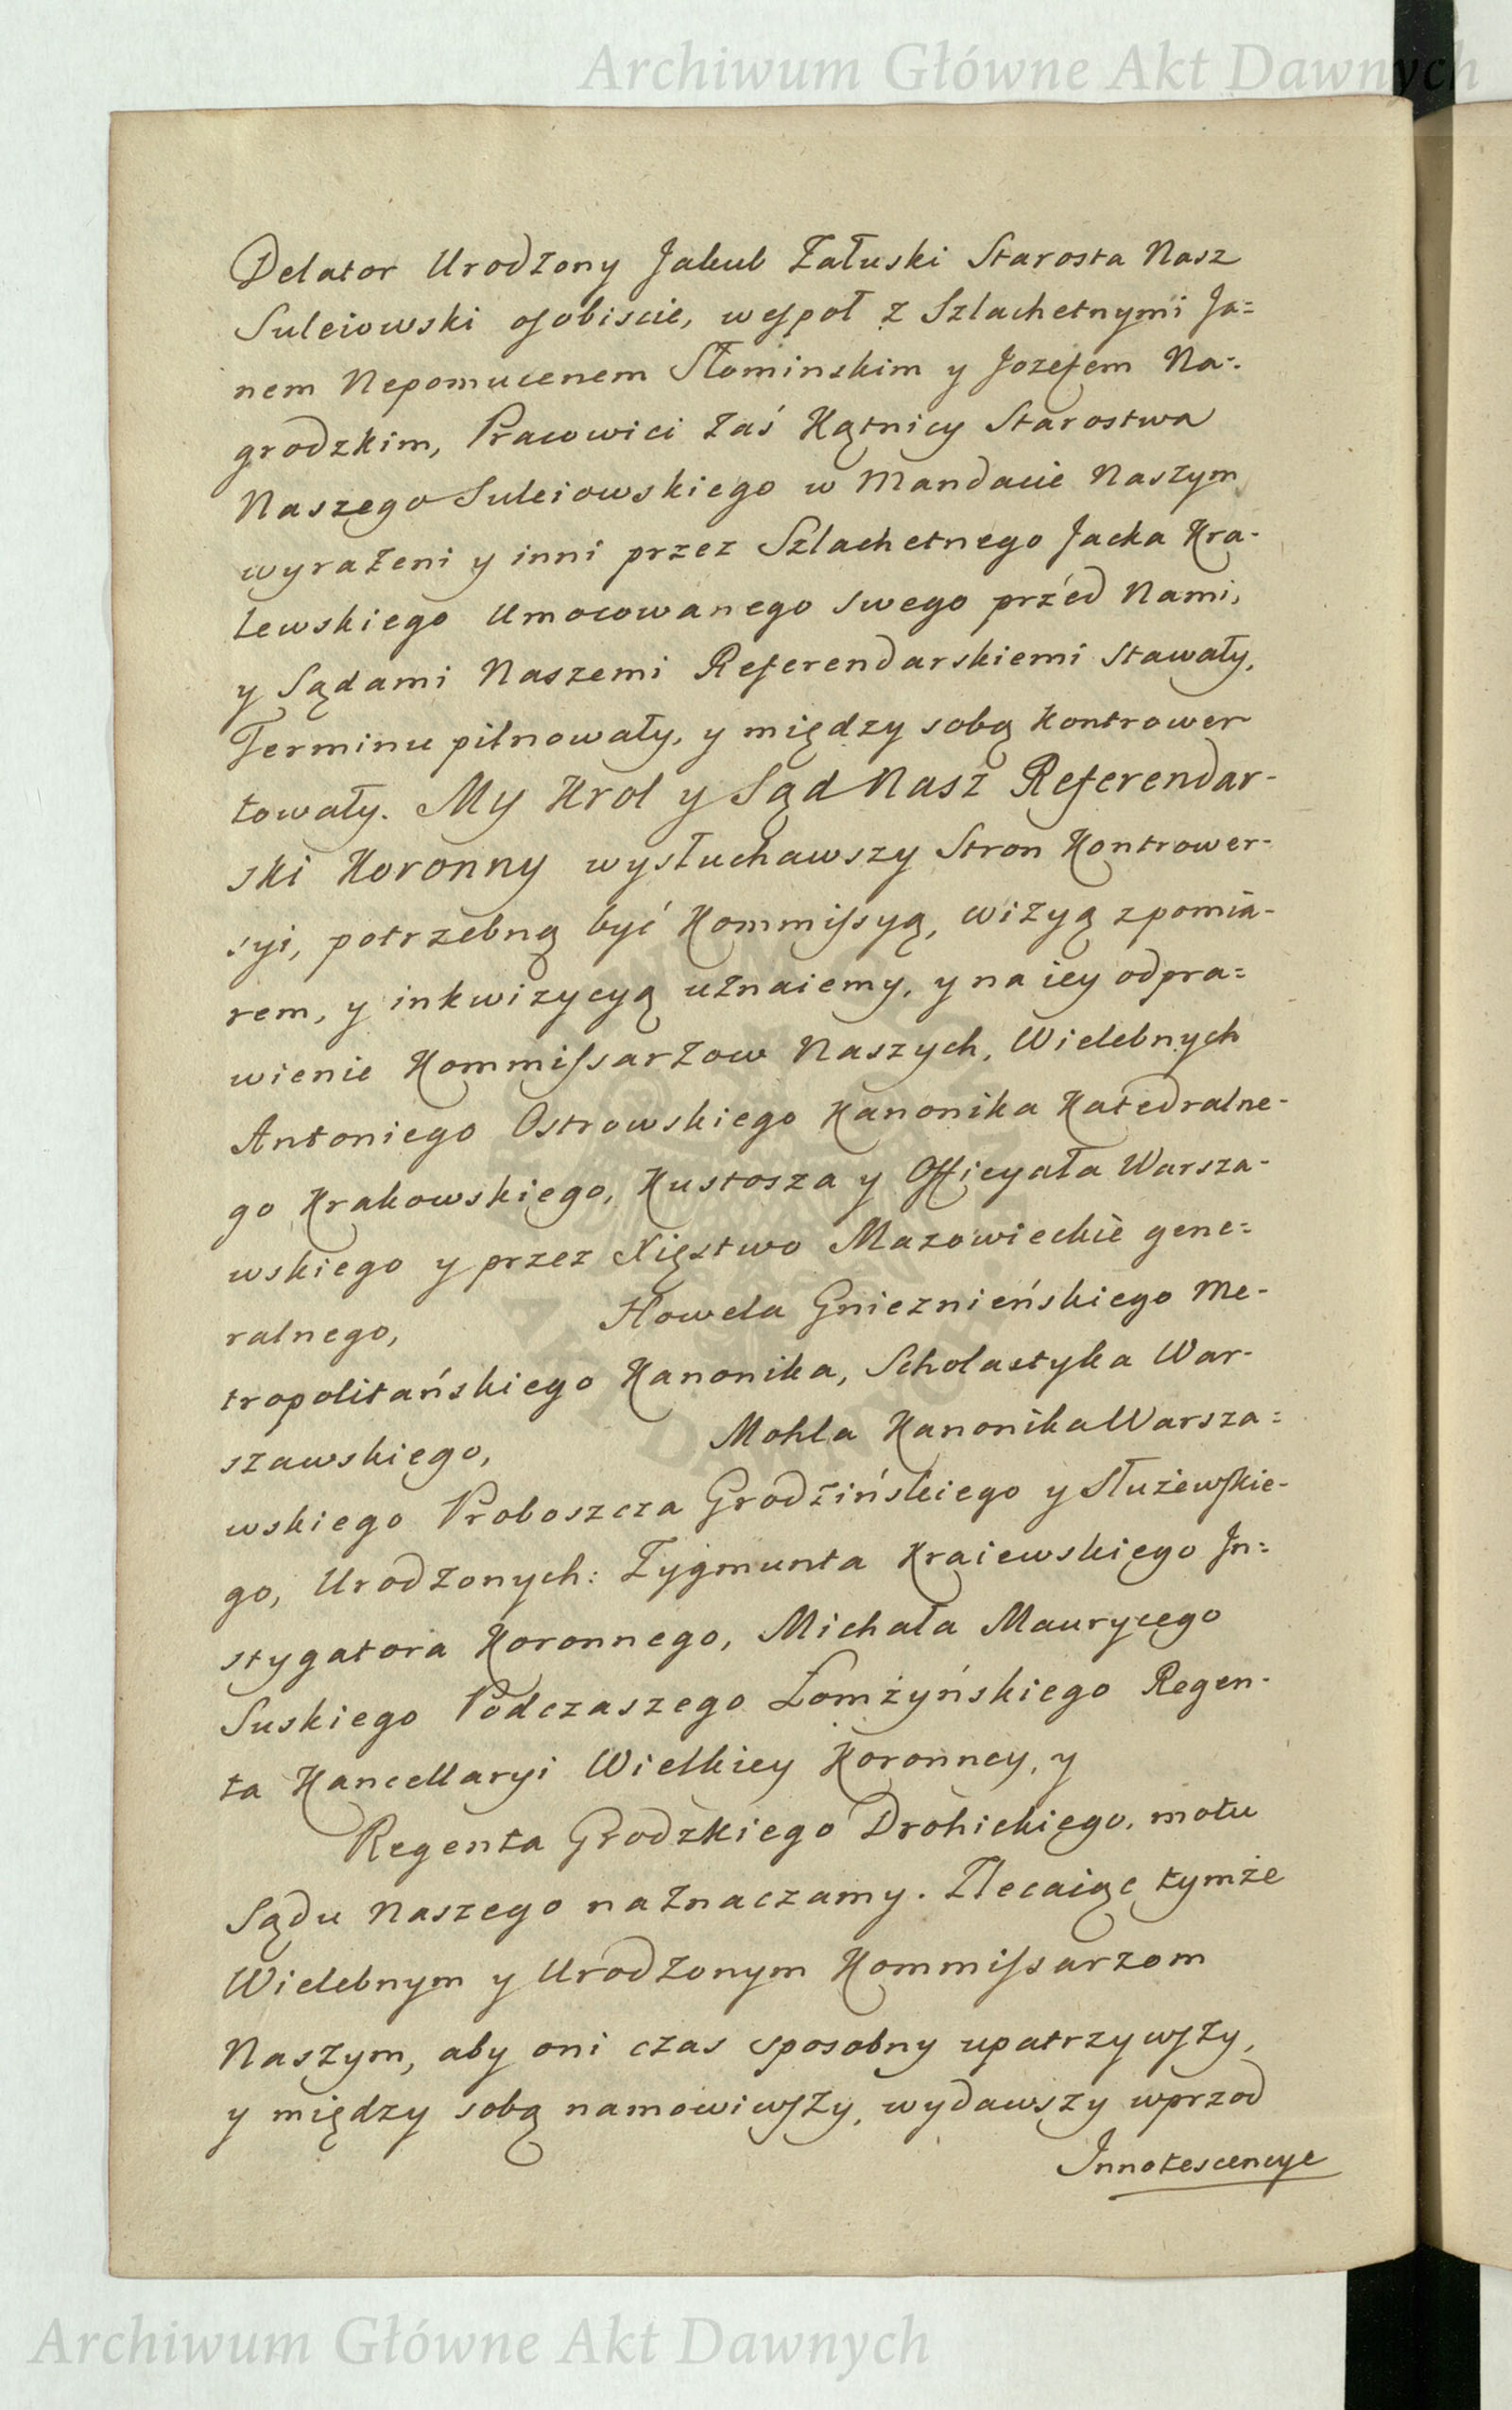 Archiwum Główne Akt Dawnych
Delator Urodzony Jakub Załuski Starosta Nasz
Suleiowski osobiscie, wespoł z Szlachetnymi Ja=
nem Nepomucenem Słominskim y Jozefem Na-
grodzkim, Pracowici zaś Kątnicy Starostwa
Naszego Suleiowskiego w Mandacie Naszym
wyrażeni y inni przez Szlachetnego Jacka Kra-
lewskiego Umocowanego swego przed Nami,
y Sądami Naszemi Referendarskiemi stawały,
Terminu pilnowały, y między sobą Kontrower
towały. My Krol y Sąd Nasz Referendar-
ski Koronny wysłuchawszy Stron Kontrower-
syi, potrzebną być Kommissyą, wizyą z pomia-
rem, y inkwizycyą uznaiemy, y na iey odpra=
wienie Kommissarzow Naszych, Wielebnych
Antoniego Ostrowskiego Kanonika Katedralne-
go Krakowskiego, Kustosza y Officyała Warsza-
wskiego y przez Xięstwo Mazowieckie gene=
ralnego, Howela Gnieznieńskiego Me-
tropolitańskiego Kanonika, Scholastyka War-
szawskiego, Mohla Kanonika Warsza=
wskiego Proboszcza Grodzińskiego y Służewskie-
go, Urodzonych: Zygmunta Kraiewskiego In=
stygatora Koronnego, Michała Maurycego
Suskiego Podczaszego Łomżyńskiego Regen-
ta Kancellaryi Wielkiey Koronney, y
Regenta Grodzkiego Drohickiego, motu
Sądu Naszego naznaczamy. Zlecaiąc tymże
Wielebnym y Urodzonym Kommissarzom
Naszym, aby oni czas sposobny upatrzywszy,
y między sobą namowiwszy, wydawszy wprzod
Innotescencye
Archiwum Główne Akt Dawnych